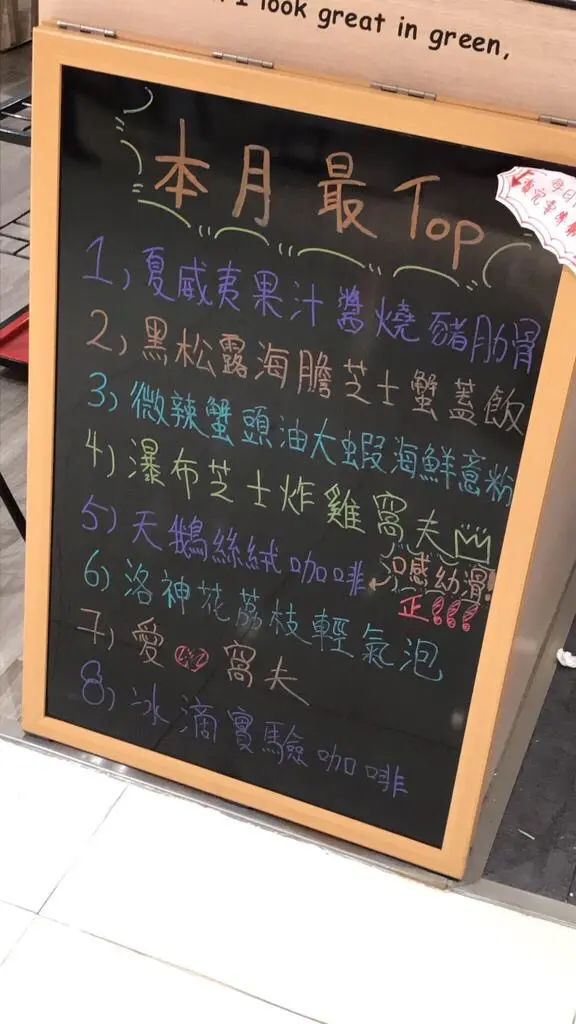 I look great in green,
本月最Top
1) 夏威夷果汁醬燒豬肋骨
2) 黑松露海膽芝士蟹蓋飯
3) 微辣蟹頭油大蝦海鮮意粉
4) 瀑布芝士炸雞窩夫
5) 天鵝絲絨咖啡
口感幼滑!
正!!!
6) 洛神花荔枝輕氣泡
7) 愛 窩夫
8) 冰滴實驗咖啡